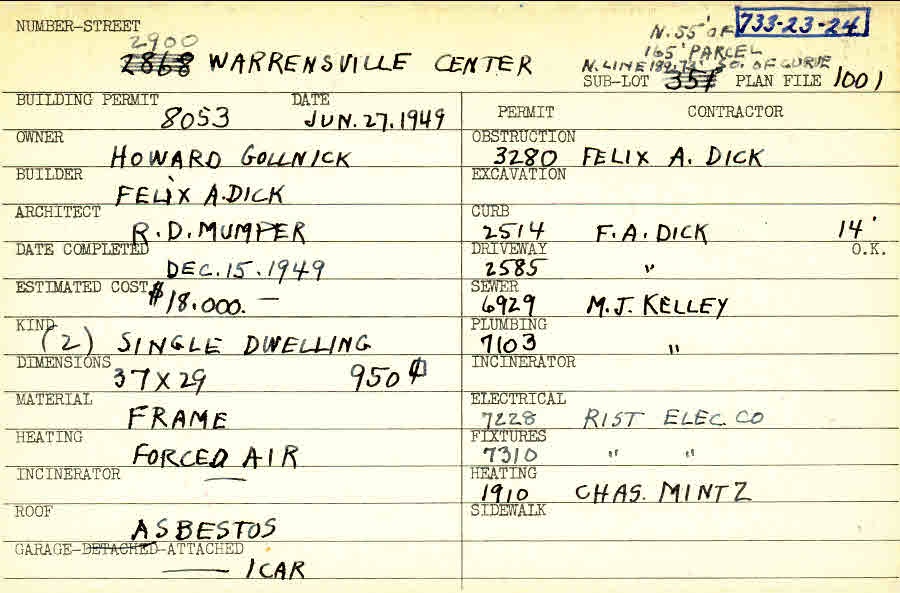 NUMBER-STREET
N. 55' OF 733-23-24
2900 165' PARCEL
2868 WARRENSVILLE CENTER N. LINE 189.72' SO. OF CURVE
SUB-LOT 351 PLAN FILE 1001
BUILDING PERMIT DATE
8053 JUN. 27. 1949
PERMIT CONTRACTOR
OWNER
HOWARD GOLLNICK
OBSTRUCTION
3280 FELIX A. DICK
BUILDER
FELIX A. DICK
EXCAVATION
ARCHITECT
R. D. MUMPER
CURB
2514 F. A. DICK 14'
DATE COMPLETED
DEC. 15. 1949
DRIVEWAY O.K.
2585 "
ESTIMATED COST $18.000. —
SEWER
6929 M. J. KELLEY
KIND
(2) SINGLE DWELLING
PLUMBING
7103 "
DIMENSIONS
37 X 29 950
INCINERATOR
MATERIAL
FRAME
ELECTRICAL
7228 RIST ELEC. CO
HEATING
FORCED AIR
FIXTURES
7310 " "
INCINERATOR —
HEATING
1910 CHAS. MINTZ
ROOF
ASBESTOS
SIDEWALK
GARAGE-DETACHED-ATTACHED
— 1 CAR